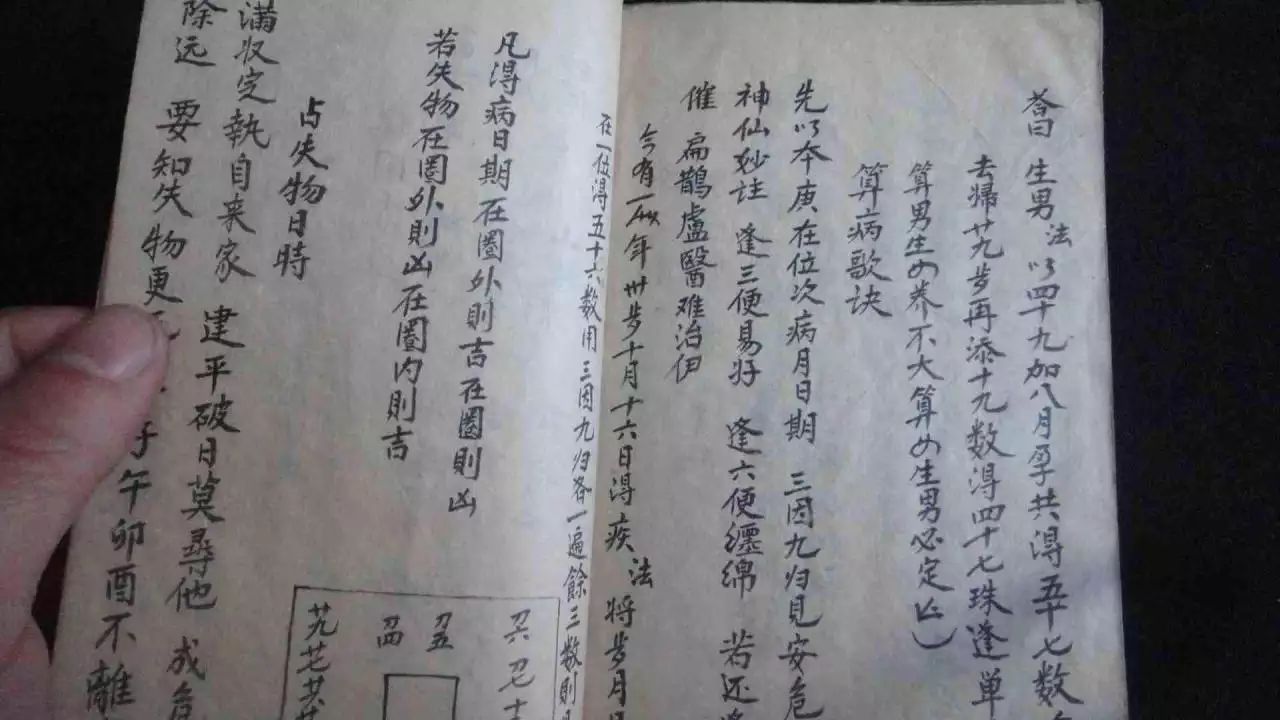 答曰 生男 法以四十九加八月孕共得五十七数
去歸廿九步再添十九数得四十七珠逢单
算男生女养不大算女生男必定
算病歌诀
先以本庚在位次病月日期 三因九归見安危
神仙妙诀 逢三便易好 逢六便纏綿 若还
催 扁鵲盧醫难治伊
今有一 年卅步十月十六日得疾 法将步月
在一位得五十六数用三因九归各一遍餘三数則
凡得病日期在圈外則吉在圈則凶
若失物在圈外則凶在圈内則吉
占失物日時
满収定執自来家 建平破日莫尋他 成危
除远 要知失物更 子午卯酉不離
初六 初七
初五
初四
廿九 廿七